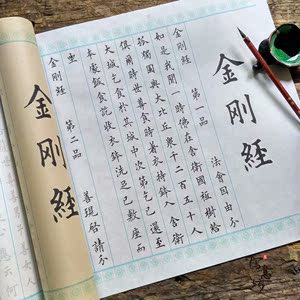 金剛經
金剛經 第一品 法會因由分
如是我聞一時佛在舍衛國祇樹給
孤獨園與大比丘眾千二百五十人
俱爾時世尊食時著衣持鉢入舍衛
大城乞食於其城中次第乞已還至
本處飯食訖收衣鉢洗足已敷座而
坐
金剛經 第二品 善現啟請分
金剛經